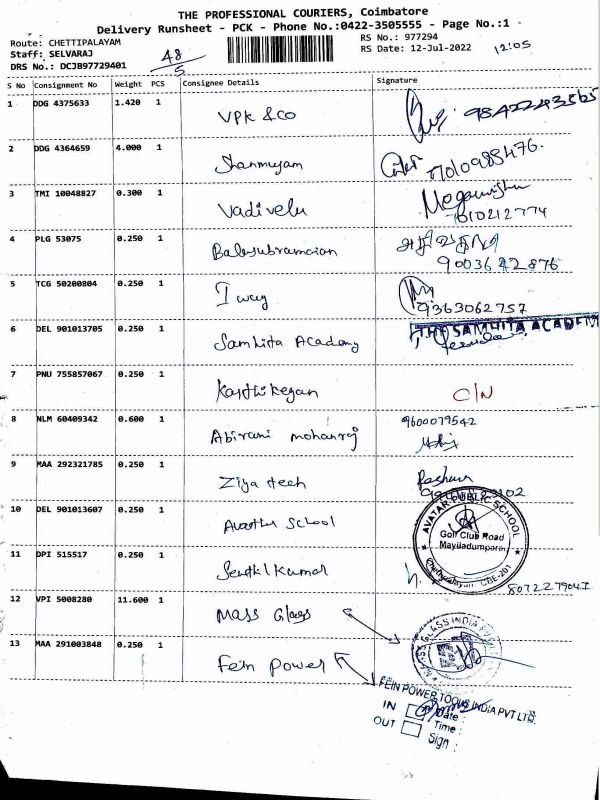 THE PROFESSIONAL COURIERS, Coimbatore
Delivery Runsheet - PCK - Phone No.:0422-3505555 - Page No.:1
Route: CHETTIPALAYAM
Staff: SELVARAJ
DRS No.: DCJB97729401
48/5
RS No.: 977294
RS Date: 12-Jul-2022
12:05
S No Consignment No Weight PCS Consignee Details Signature
1 DDG 4375633 1.420 1 VPK & CO
2 DDG 4364659 4.000 1 Shanmugam
3 TMI 10048827 0.300 1 Vadivelu
4 PLG 53075 0.250 1 Balasubramanian
9003642876
5 TCG 50200804 0.250 1 I way
9363062757
6 DEL 901013705 0.250 1 Samhita Academy THE SAMHITA ACADEMY
7 PNU 755857067 0.250 1 Karthikeyan C/N
8 NLM 60409342 0.600 1 Abirami mohanraj 9600079542
9 MAA 292321785 0.250 1 Ziya tech
10 DEL 901013607 0.250 1 School
AVATAR PUBLIC SCHOOL
Golf Club Road
11 DPI 515517 0.250 1 Senthil Kumar
12 VPI 5008280 11.600 1 Mass Glass
MASS GLASS INDIA
13 MAA 291003848 0.250 1 Fein Power
FEIN POWER TOOLS INDIA PVT LTD.
IN Date :
OUT Time :
Sign :